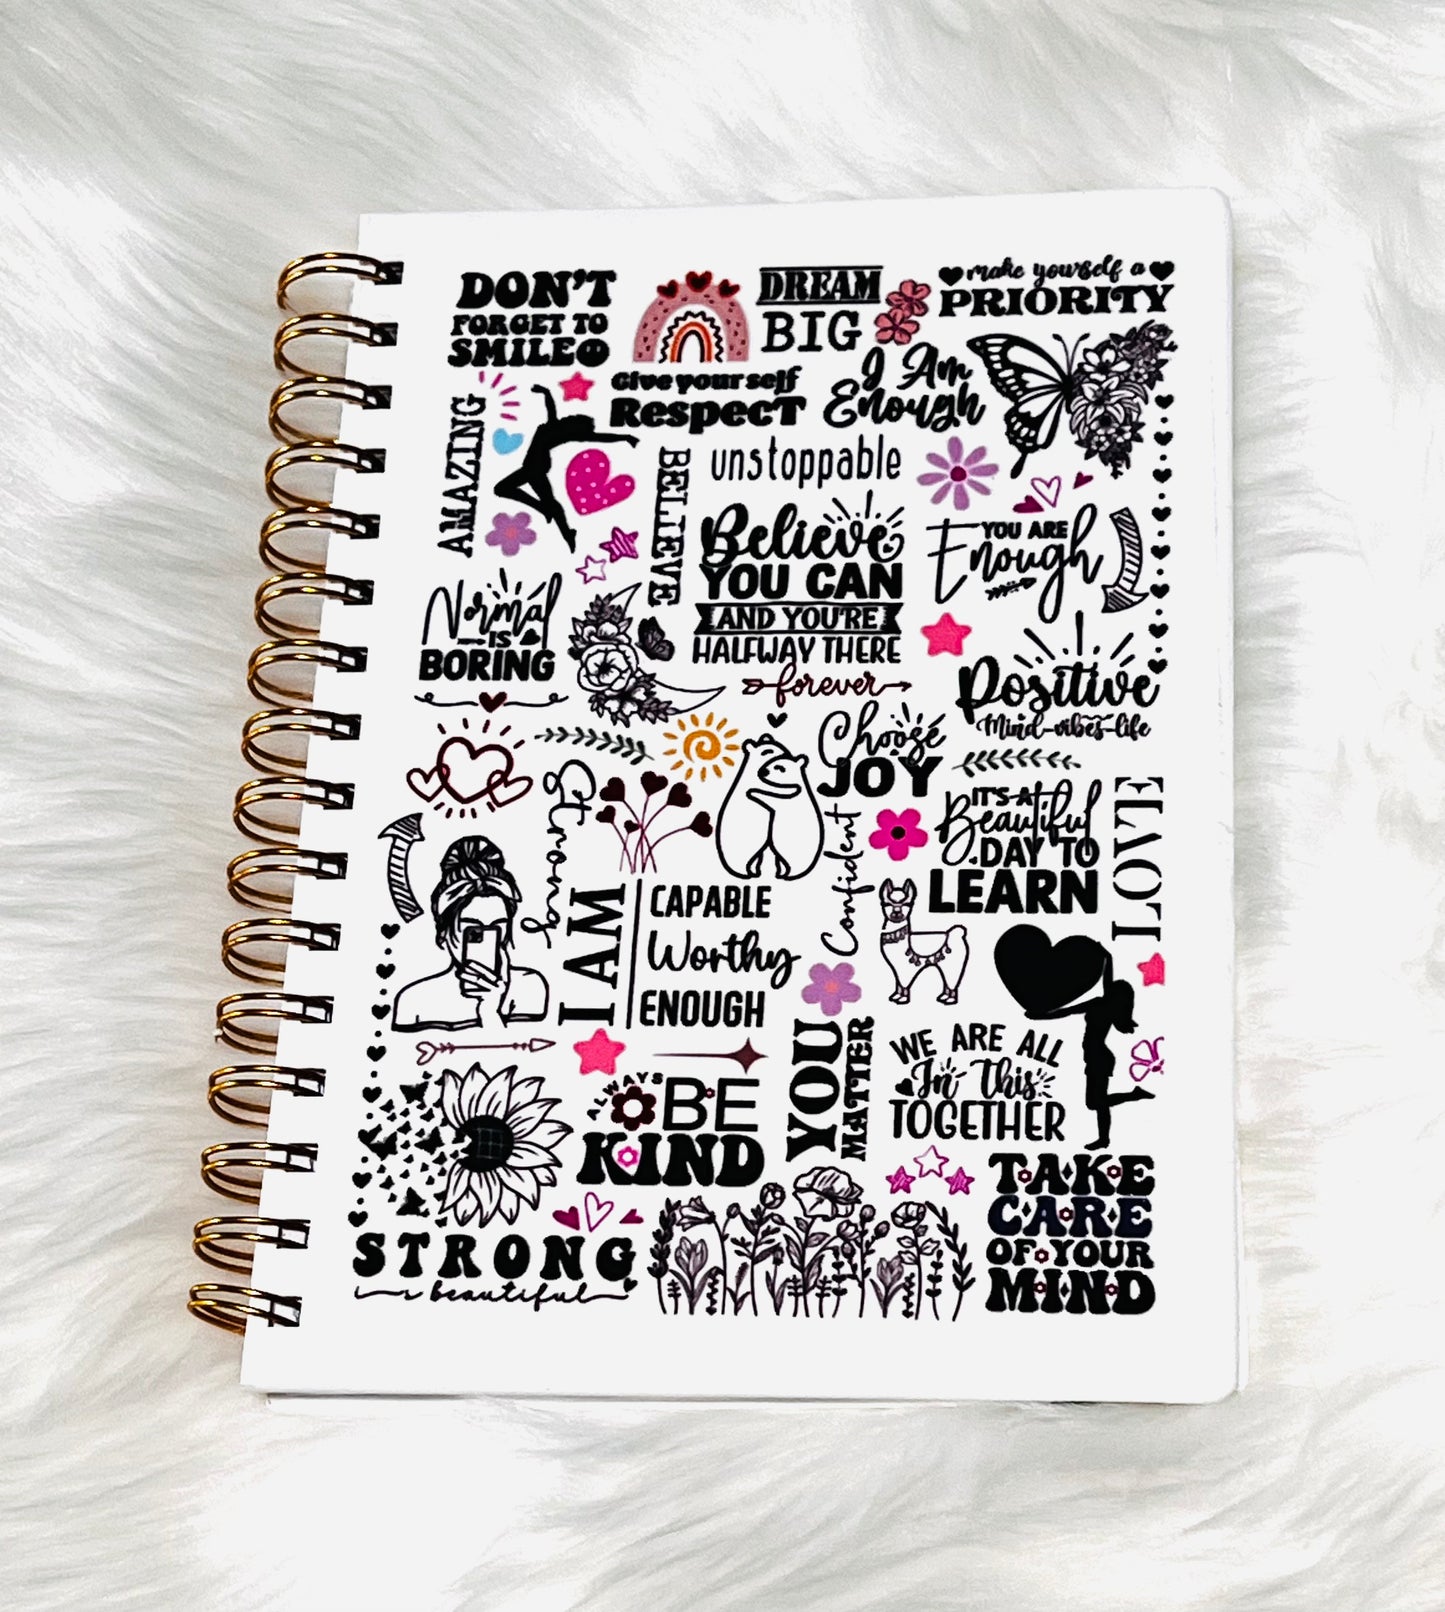 DON'T
FORGET TO
SMILE
DREAM
BIG
make yourself a
PRIORITY
Give yourself
Respect
I Am
Enough
AMAZING
BELIEVE
unstoppable
Believe
YOU CAN
AND YOU'RE
HALFWAY THERE
YOU ARE
Enough
Normal
IS
BORING
forever
Positive
Mind-vibes-life
Choose
JOY
Strong
Confident
IT'S A
Beautiful
DAY TO
LEARN
LOVE
I AM
CAPABLE
Worthy
ENOUGH
YOU
MATTER
WE ARE ALL
In This
TOGETHER
ALWAYS
BE
KIND
STRONG
beautiful
TAKE
CARE
OF YOUR
MIND